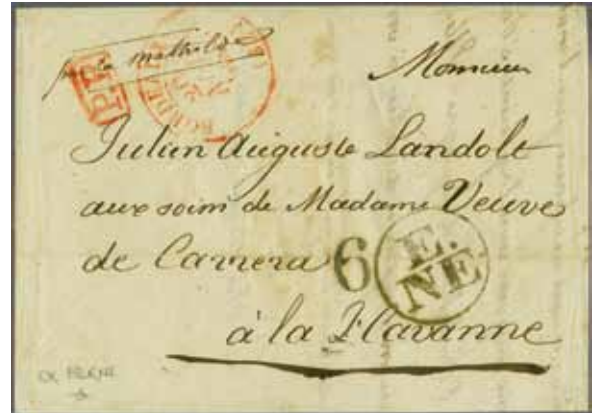 par la mathilde
P.P.
BORDE
Monsieur
Julien Auguste Landolt
aux soins de Madame Veuve
de Carrera
6
E.
NE
à la Havanne